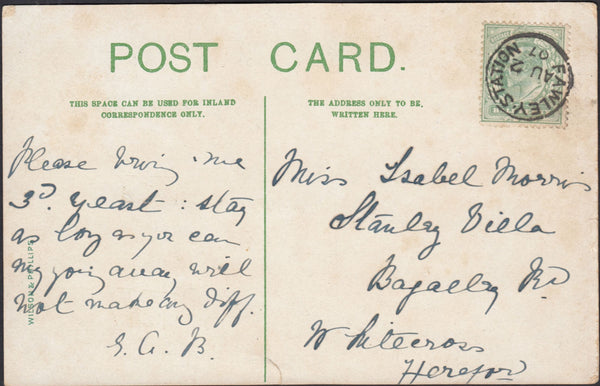 POST CARD.
THIS SPACE CAN BE USED FOR INLAND
CORRESPONDENCE ONLY.
THE ADDRESS ONLY TO BE
WRITTEN HERE.
FAWLEY-STATION
AU 2
07
Please bring me
3d. yeast: stay
as long as you can
my going away will
not make any diff.
E. A. B.
Miss Isabel Morris
Stanley Villa
Rd
Whitecross
Hereford
WILSON & PHILLIPS